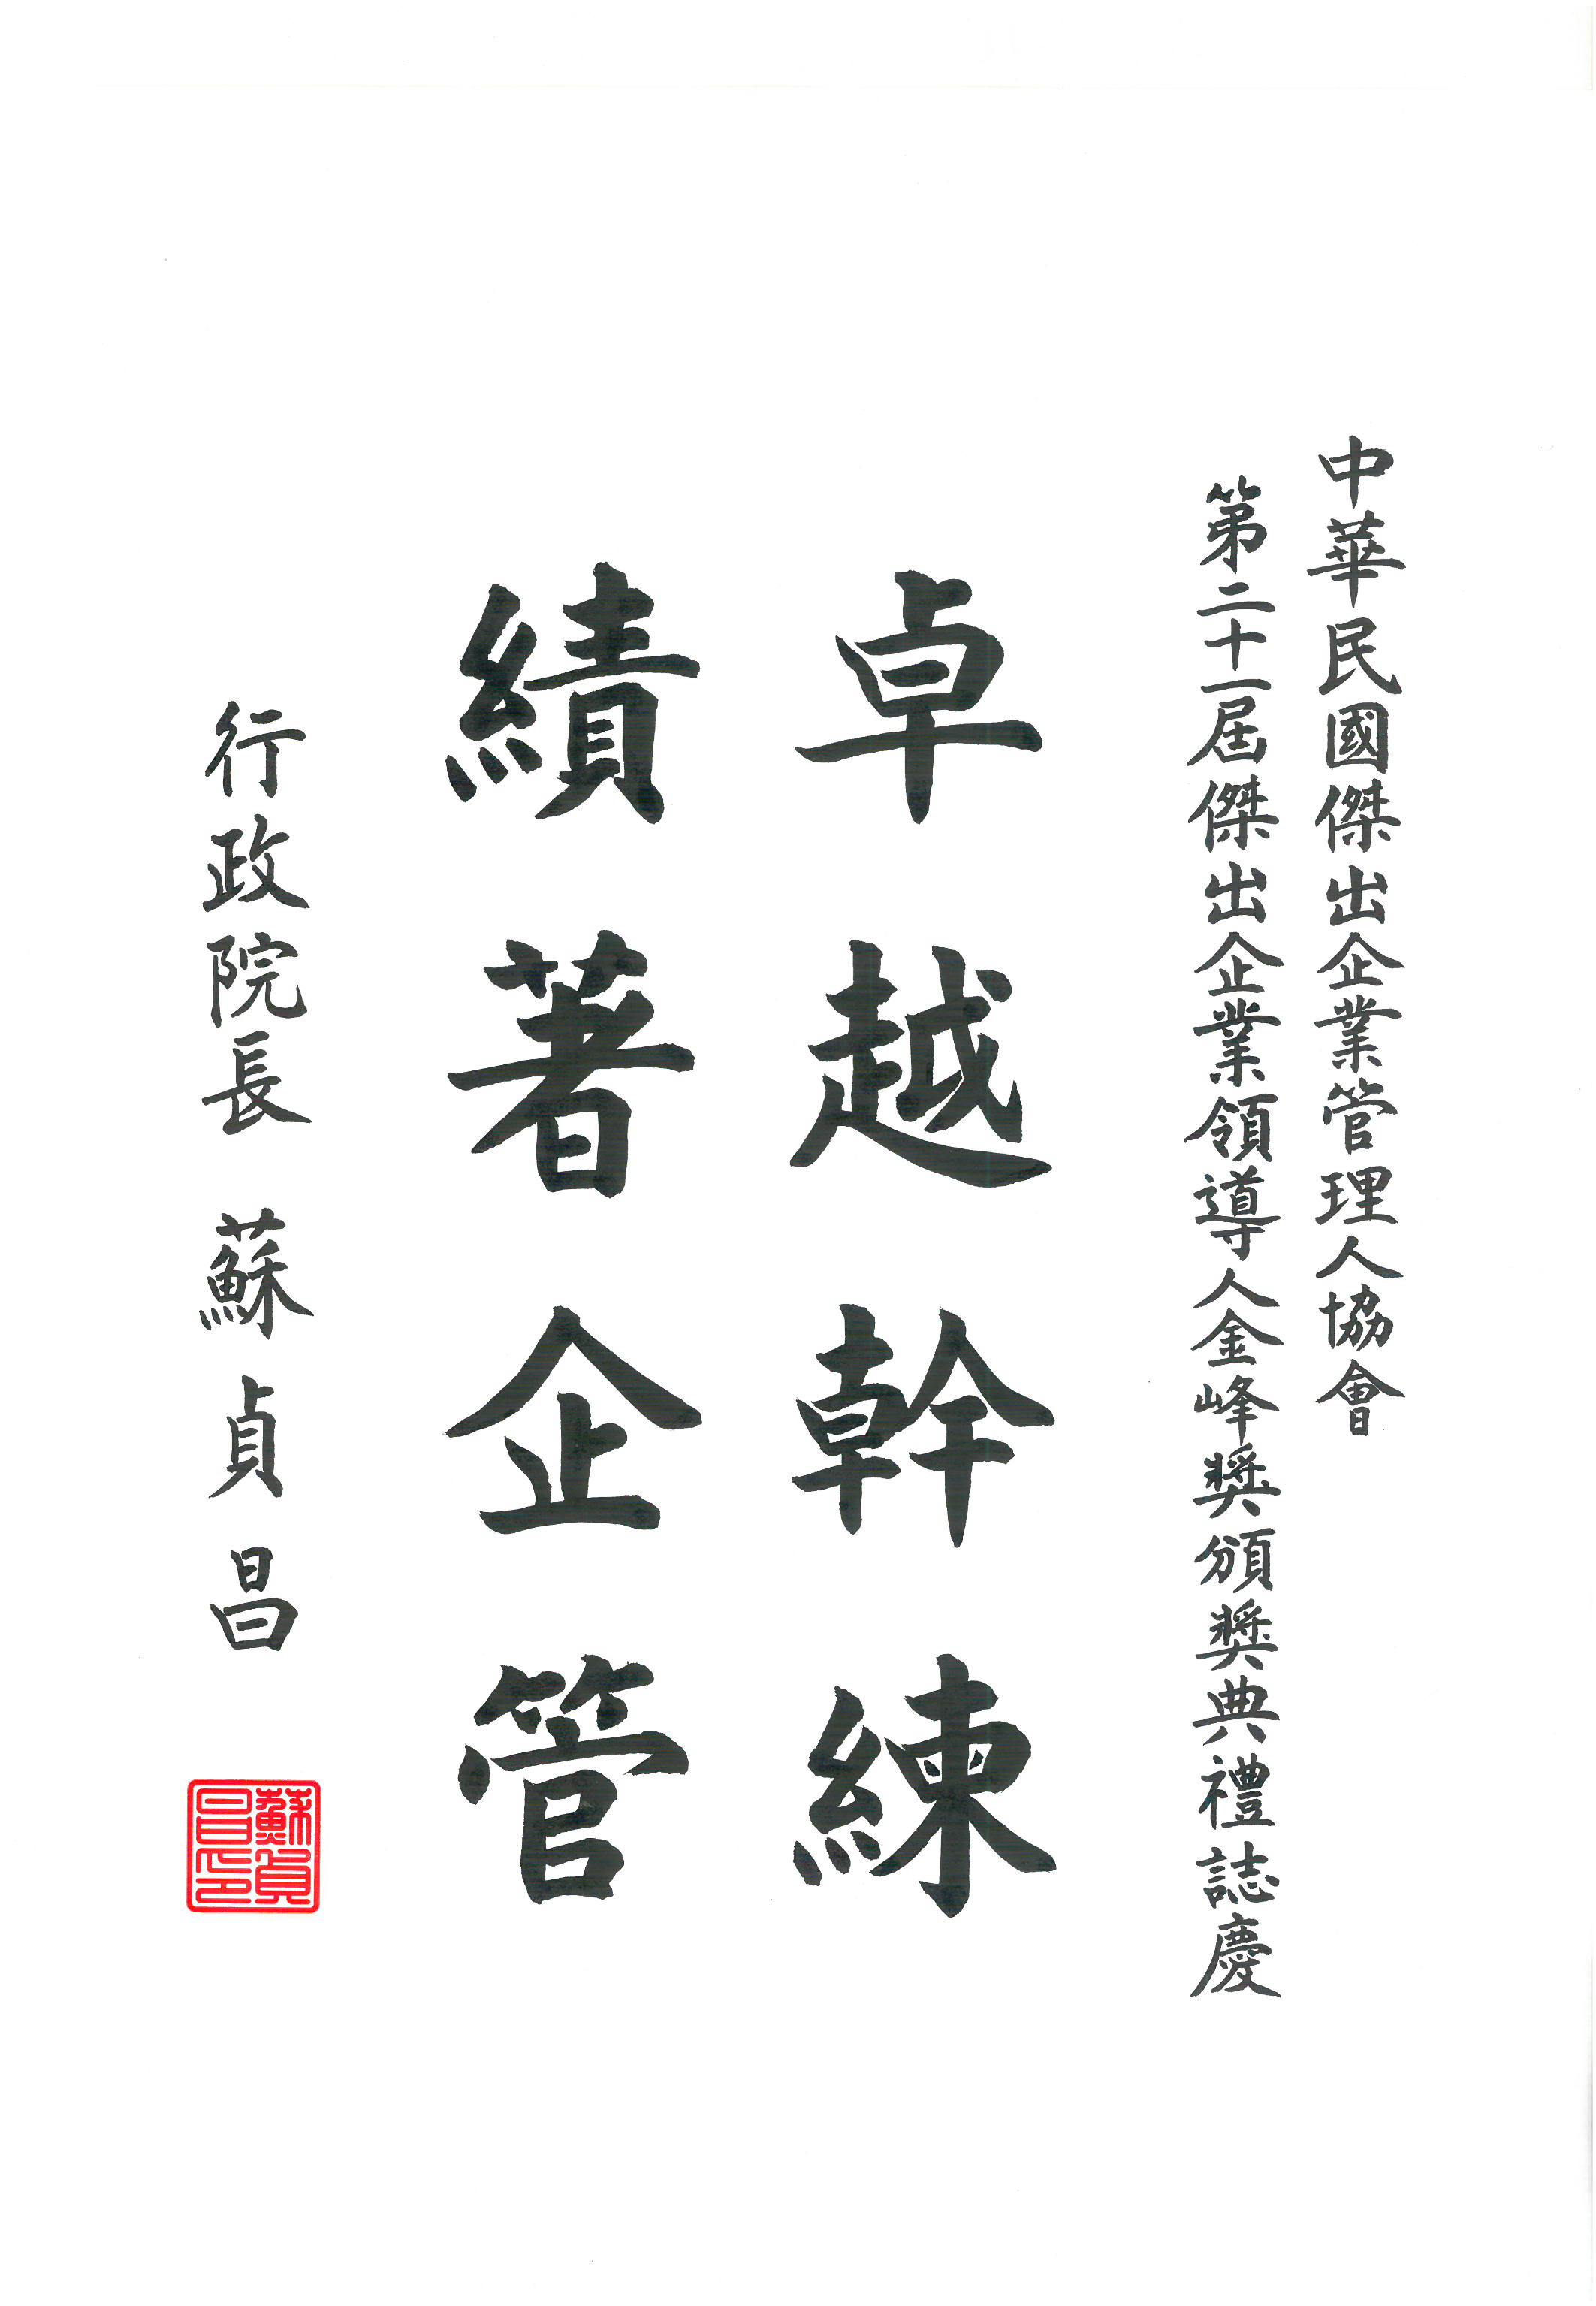 中華民國傑出企業管理人協會
第二十一屆傑出企業領導人金峰獎頒獎典禮誌慶
卓越幹練
績著企管
行政院長 蘇貞昌
蘇貞昌印